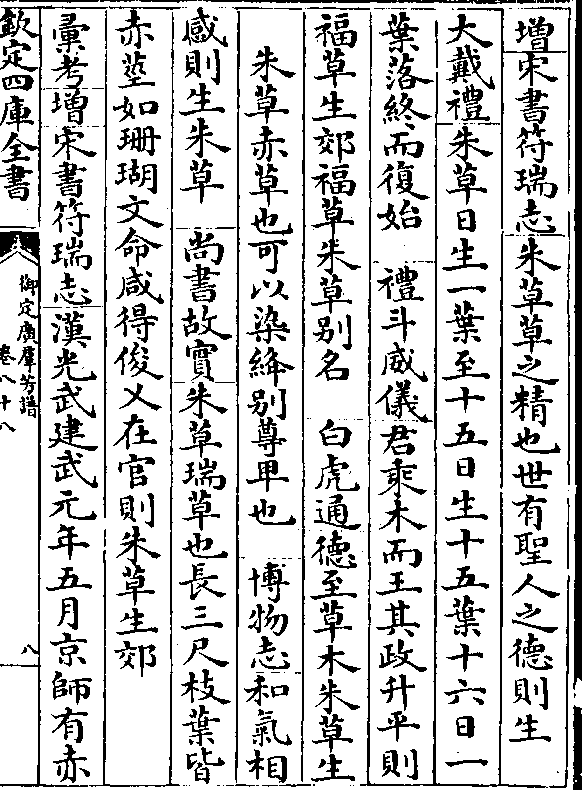 增宋書符瑞志朱草草之精也世有聖人之德則生
大戴禮朱草日生一葉至十五日生十五葉十六日一
葉落終而復始　禮斗威儀君乘木而王其政升平則
福草生郊福草朱草别名　白虎通德至草木朱草生
朱草赤草也可以染絳别尊卑也　博物志和氣相
感則生朱草　尚書故實朱草瑞草也長三尺枝葉皆
赤莖如珊瑚文命咸得俊乂在官則朱草生郊
彚考增宋書符瑞志漢光武建武元年五月京師有赤
欽定四庫全書
御定廣羣芳譜
卷八十八
八